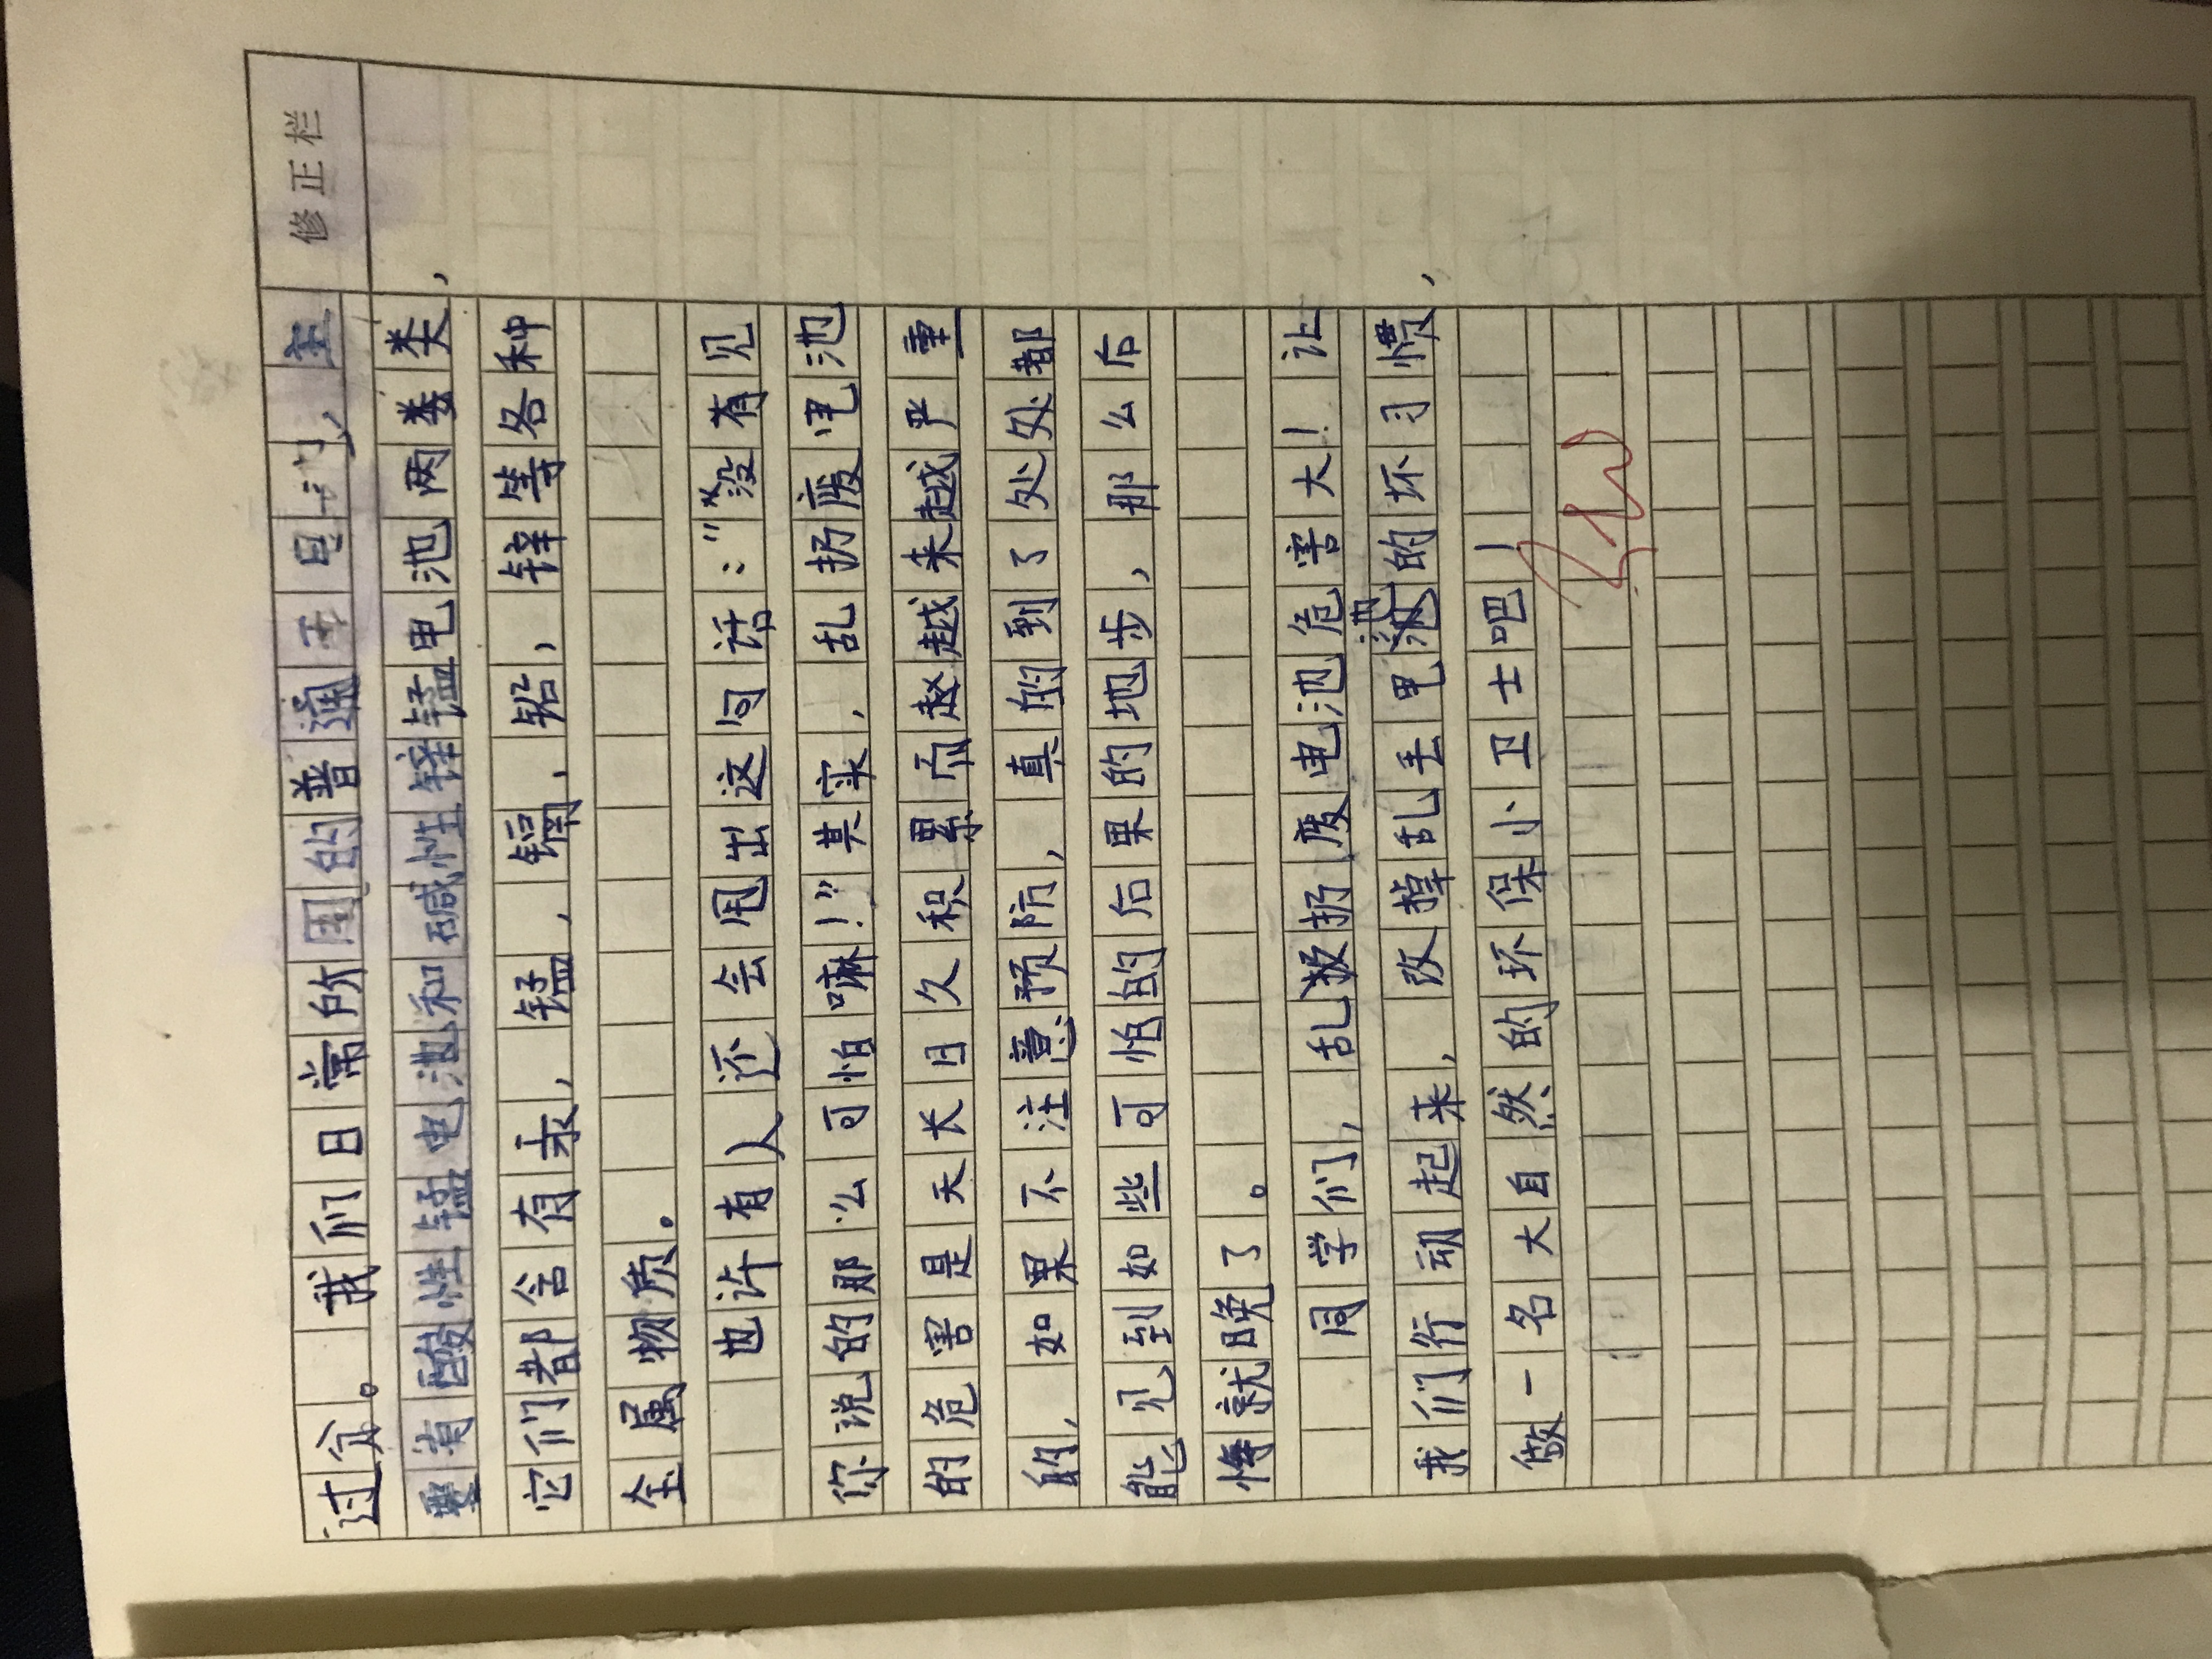 修正栏
过分。我们日常所用的普通干电池,主
要有酸性锰电池和碱性锌锰电池两类类,
它们都含有汞,锰,镉,铅,锌等各种
金属物质。
也许有人还会甩出这句话:“没有见
你说的那么可怕嘛!”其实,乱扔废电池
的危害是天长日久积累而越越来越严重
的,如果不注意预防,真的到了处处都
能见到如些可怕的后果的地步,那么后
悔就晚了。
同学们,乱扔废电池危害大!让
我们行动起来,改掉乱丢电池的坏习惯,
做一名大自然的环保小卫士吧!